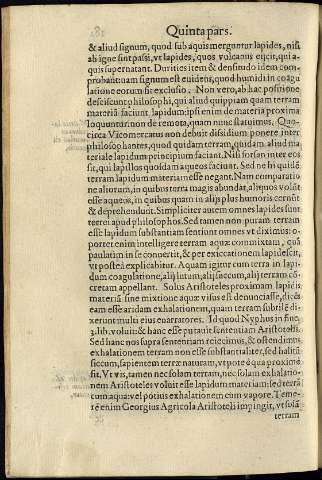 Quinta pars.
& aliud signum, quod sub aquis merguntur lapides, nisi
ab igne sint passi, vt lapides, quos volcanus eijcit, qui a-
quis supernatant. Durities item & densitudo idem com-
probant: nam signum est euidens, quod humidi in coagu
latione eorum fit exclusio. Non vero, ab hac positione
desciscunt philosophi, qui aliud quippiam quam terram
materiã faciunt lapidum: ipsi enim de materia proxima
loquuntur, non de remota, quam nunc statuimus. Quo-
circa Vicomercatus non debuit dissidium ponere inter
philosophantes, quod quidam terram, quidam aliud ma
teriale lapidum principium faciant. Nisi forsan inter eos
sit, qui lapillos quosdam aqueos faciunt. Sed ne hi quidẽ
terram lapidum materiam esse negant. Nam comparatio
ne aliorum, in quibus terra magis abundat, aliquos volũt
esse aqueos, in quibus quam in alijs plus humoris cernũt
& deprehendũt. Simpliciter autem omnes lapides sunt
terrei apud philosophos. Sed tamen non puram terram
esse lapidum substantiam sentiunt omnes vt diximus: o-
portet enim intelligere terram aquæ commixtam, quã
paulatim in se conuertit, & per exiccationem lapidescit,
vt postea explicabitur. Aquam igitur cum terra in lapi-
dum coagulatione, alij lutum, alij succum, alij terram cõ-
cretam appellant. Solus Aristoteles proximam lapidis
materiã sine mixtione aquæ visus est denunciasse, dicẽs
eam esse aridam exhalationem, quam terram subtilẽ di-
xerunt multi eius enarratores. Id quod Nyphus in fine,
3. lib. voluit: & hanc esse putauit sententiam Aristotelis.
Sed hanc nos supra sententiam reiecimus, & ostendimus
exhalationem terram non esse substantialiter, sed halitũ
siccum, sapientem terræ naturam, vt pote è qua proximè
sit. Vt vis, tamen nec solam terram, nec solam exhalatio-
nem Aristoteles voluit esse lapidum materiam: sed terrã
cum aqua: vel potius exhalationem cum vapore. Teme-
rè enim Georgius Agricola Aristoteli impingit, vt solã
terram